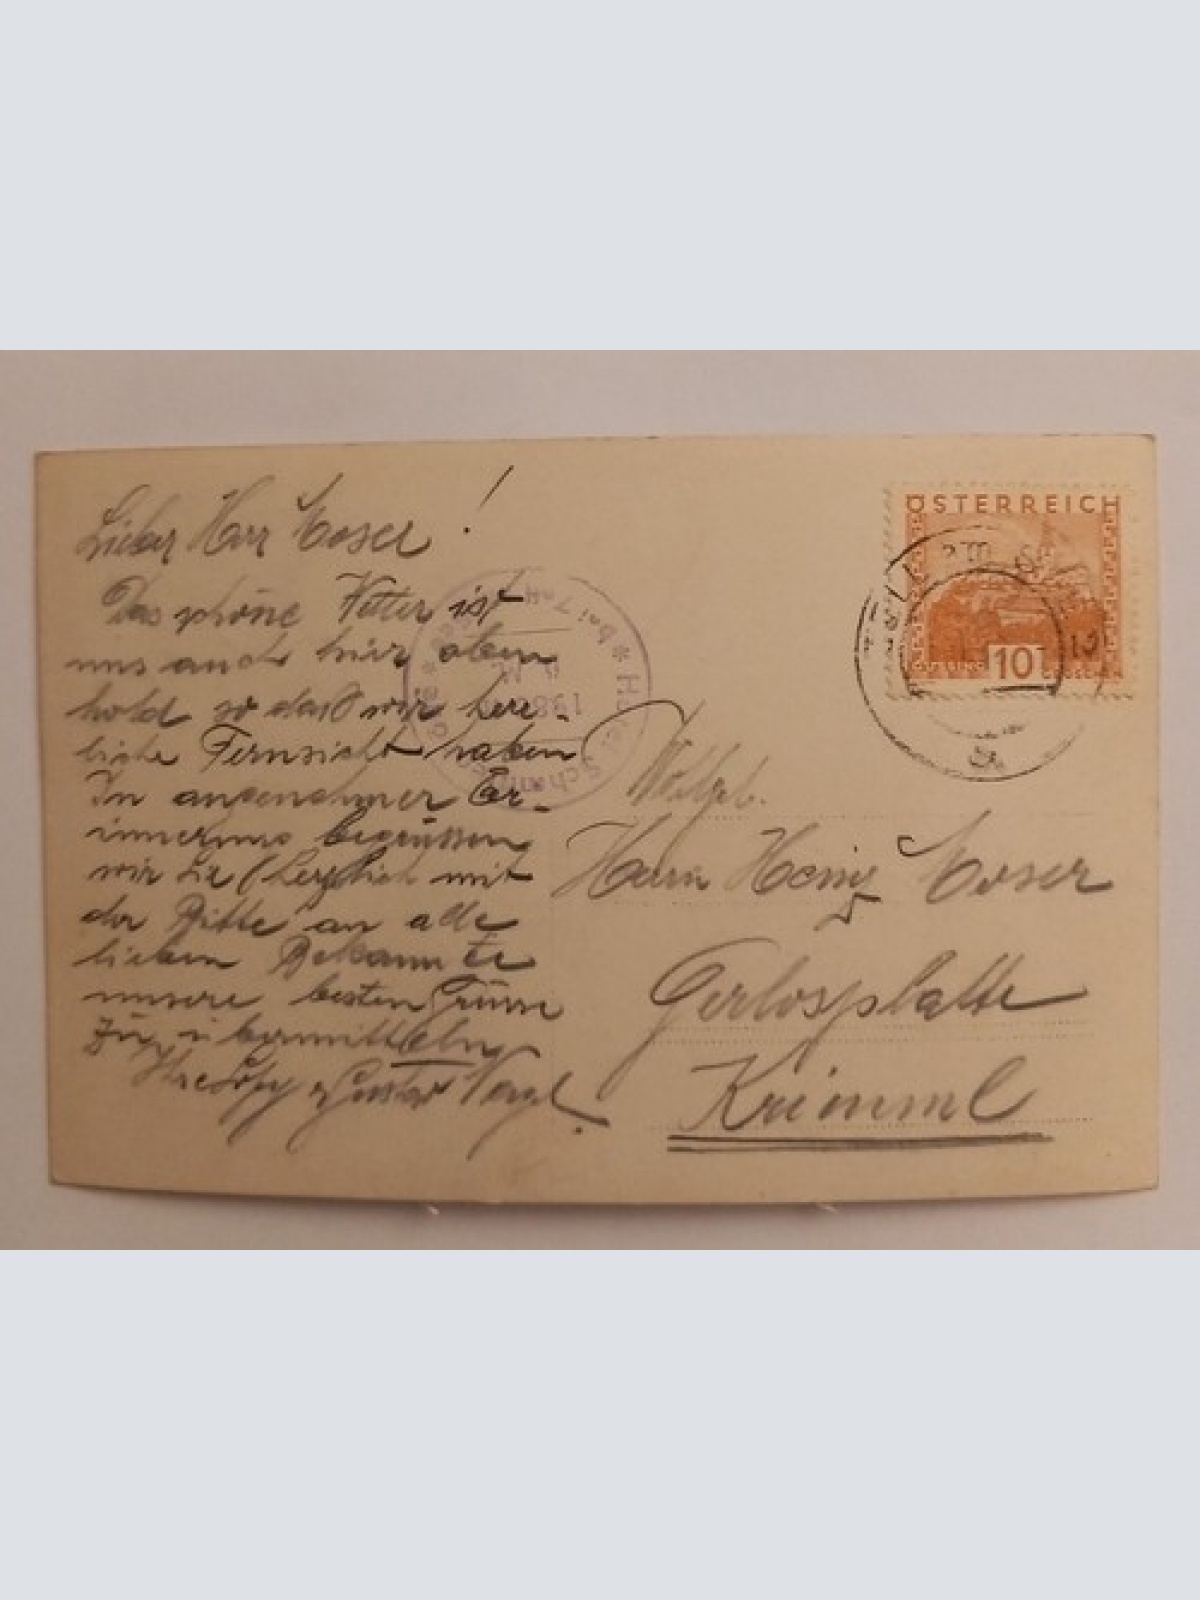 Lieber Herr Moser!
Das schöne Wetter ist
uns auch hier oben
hold so daß wir herr-
liche Fernsicht haben
In angenehmer Er-
innerung begrüssen
wir Sie herzlich mit
der Bitte an alle
lieben Bekannte
unsere besten Grüsse
zu übermitteln
Ihre Gustav
ÖSTERREICH
GÜSSING 10 GROSCHEN
ZELL AM SEE
Hotel Schmitten
* bei Zell *
1986 M.
Wohlgeb.
Herrn Heinz Moser
Gerlosplatte
Krimml